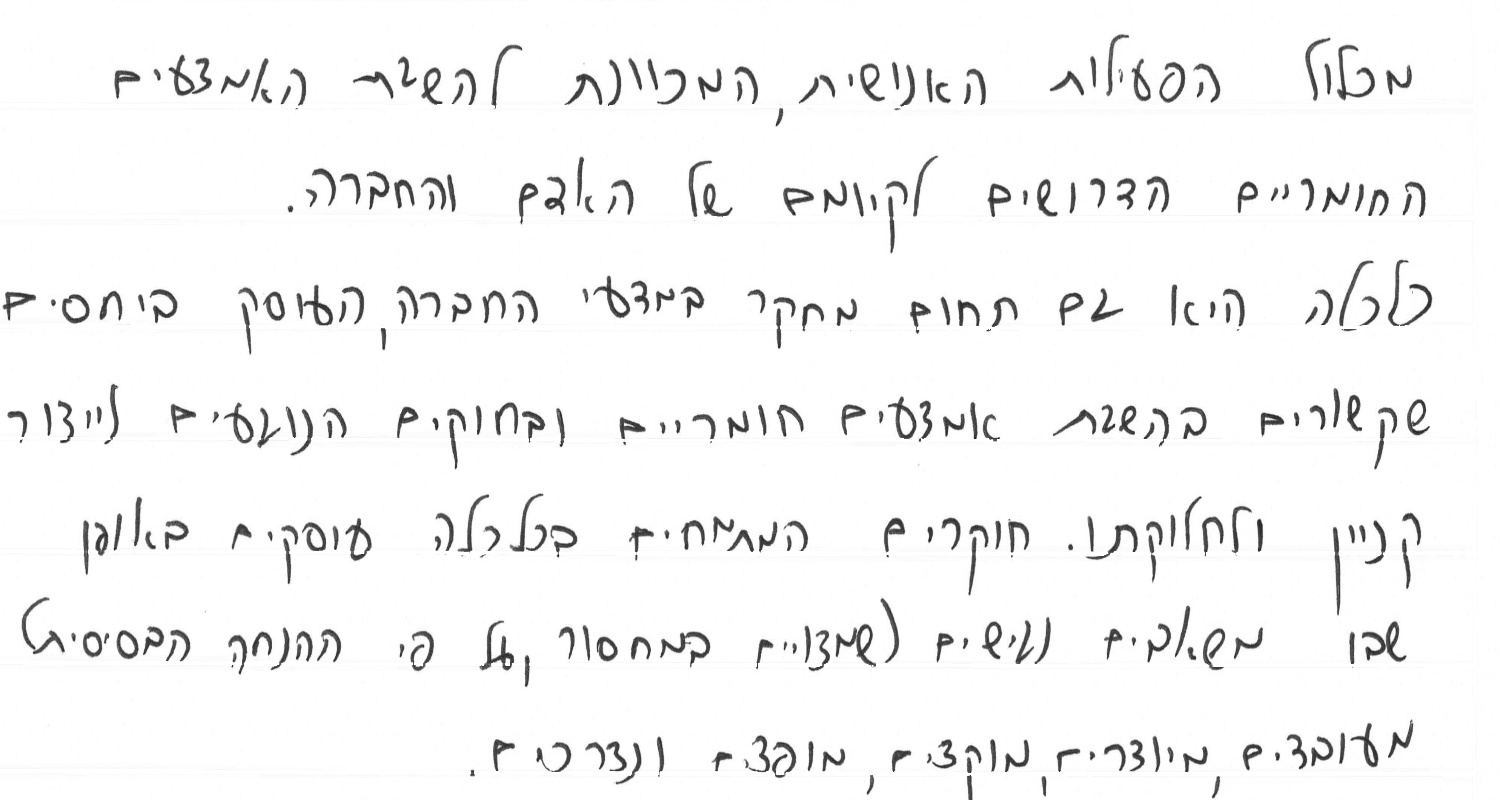 מכלול הפעילות האנושית, המכוונת להשגת האמצעים
החומריים הדרושים לקיומם של האדם והחברה.
כלכלה היא גם תחום מחקר במדעי החברה, העוסק ביחסים
שקשורים בהשגת אמצעים חומריים ובחוקים הנוגעים לייצור
קניין ולחלוקתו. חוקרים המתמחים בכלכלה עוסקים באופן
שבו משאבים נגישים (שמצויים במחסור, על פי ההנחה הבסיסית)
מעובדים, מיוצרים, מוקצים, מופצים ונצרכים.